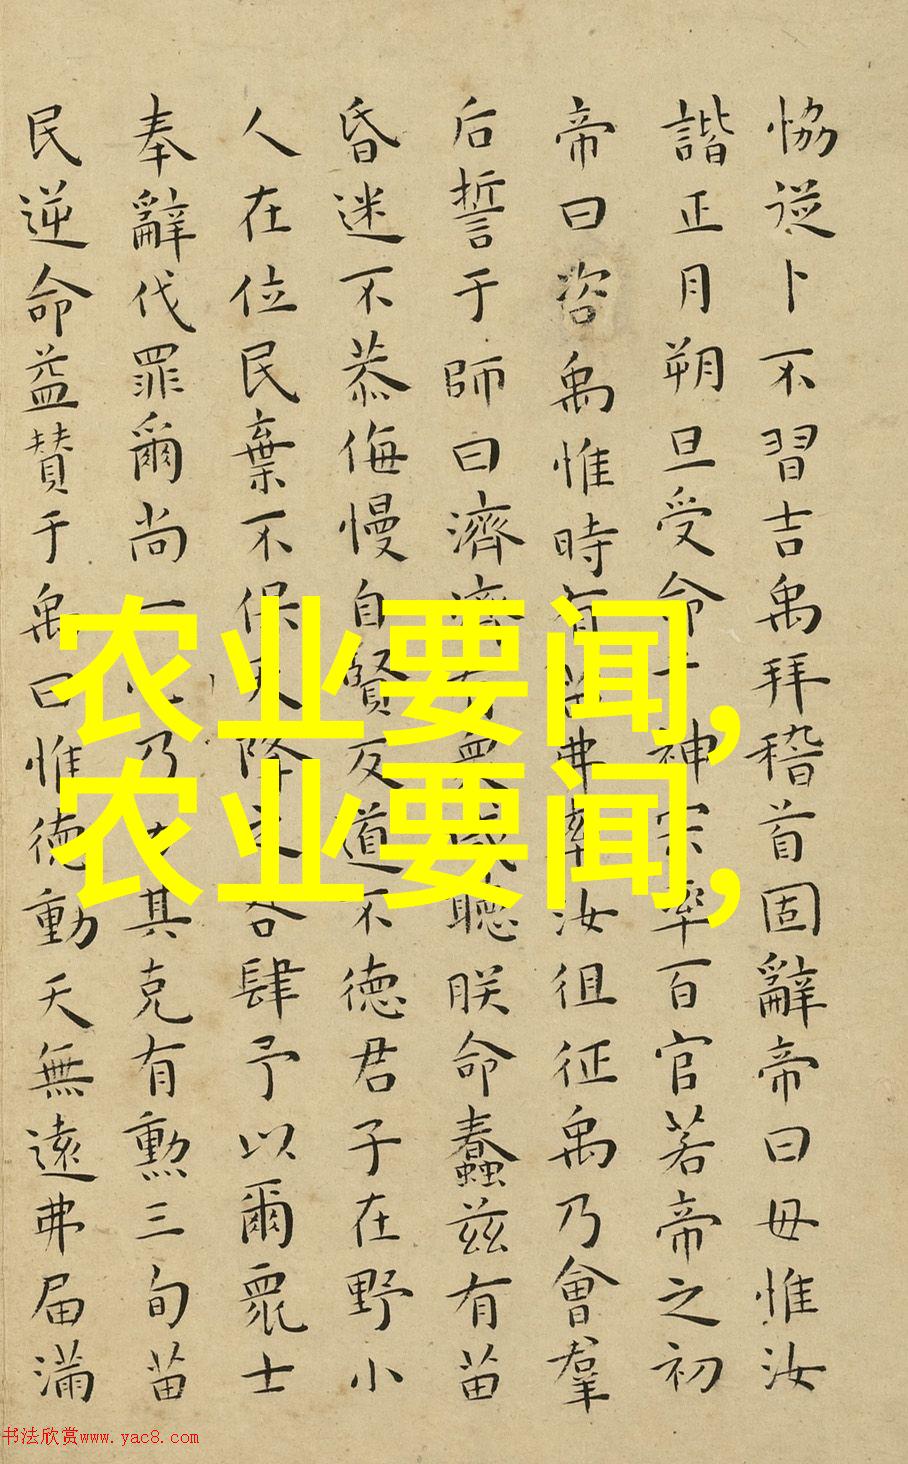 恊從卜不習吉禹拜稽首固辭帝曰毋惟汝
諧正月朔旦受命于神宗率百官若帝之初
帝曰咨禹惟時有苗弗率汝徂征禹乃會羣
后誓于師曰濟濟有衆咸聽朕命蠢兹有苗
昏迷不恭侮慢自賢反道不徳君子在野小
人在位民棄不保天降之咎肆予以爾衆士
奉辭伐罪爾尚一乃其克有勲三旬苗
民逆命益賛于禹曰惟徳動天無遠弗届滿
农业要闻,
农业要闻,
书法欣赏www.yac8.com